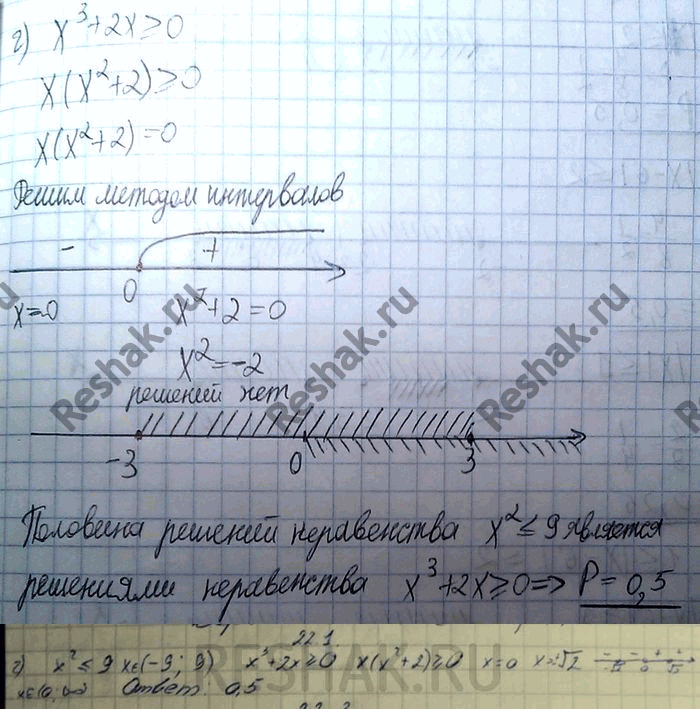 г) x³+2x≥0
x(x²+2)≥0
x(x²+2)=0
Решим методом интервалов
- +
0
x=0 x²+2=0
x²=-2
решений нет
-3 0 3
Половина решений неравенства x²≤9 является
решениями неравенства x³+2x≥0=> P=0,5
Reshak.ru
Reshak.ru
Reshak.ru
22.1.
г) x²≤9 x∈(-9; 9) x³+2x≥0 x(x²+2)≥0 x=0 x=±√2
Ответ: 0,5
RESHAK.RU